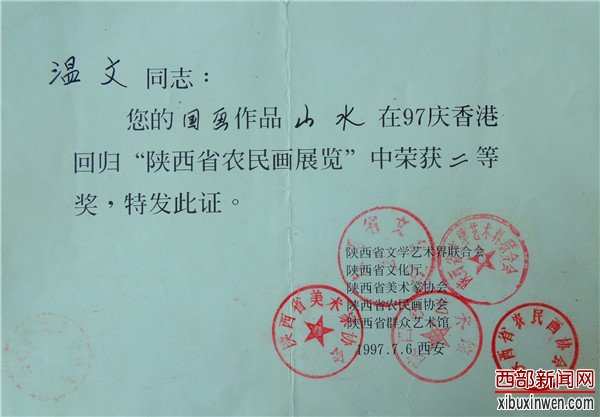 温文同志：
您的国画作品山水在97庆香港
回归“陕西省农民画展览”中荣获二等
奖，特发此证。
陕西省文学艺术界联合会
陕西省文化厅
陕西省美术家协会
陕西省农民画协会
陕西省群众艺术馆
1997.7.6 西安
陕西省美术家协会
陕西省农民画协会
西部新闻网
xibuxinwen.com